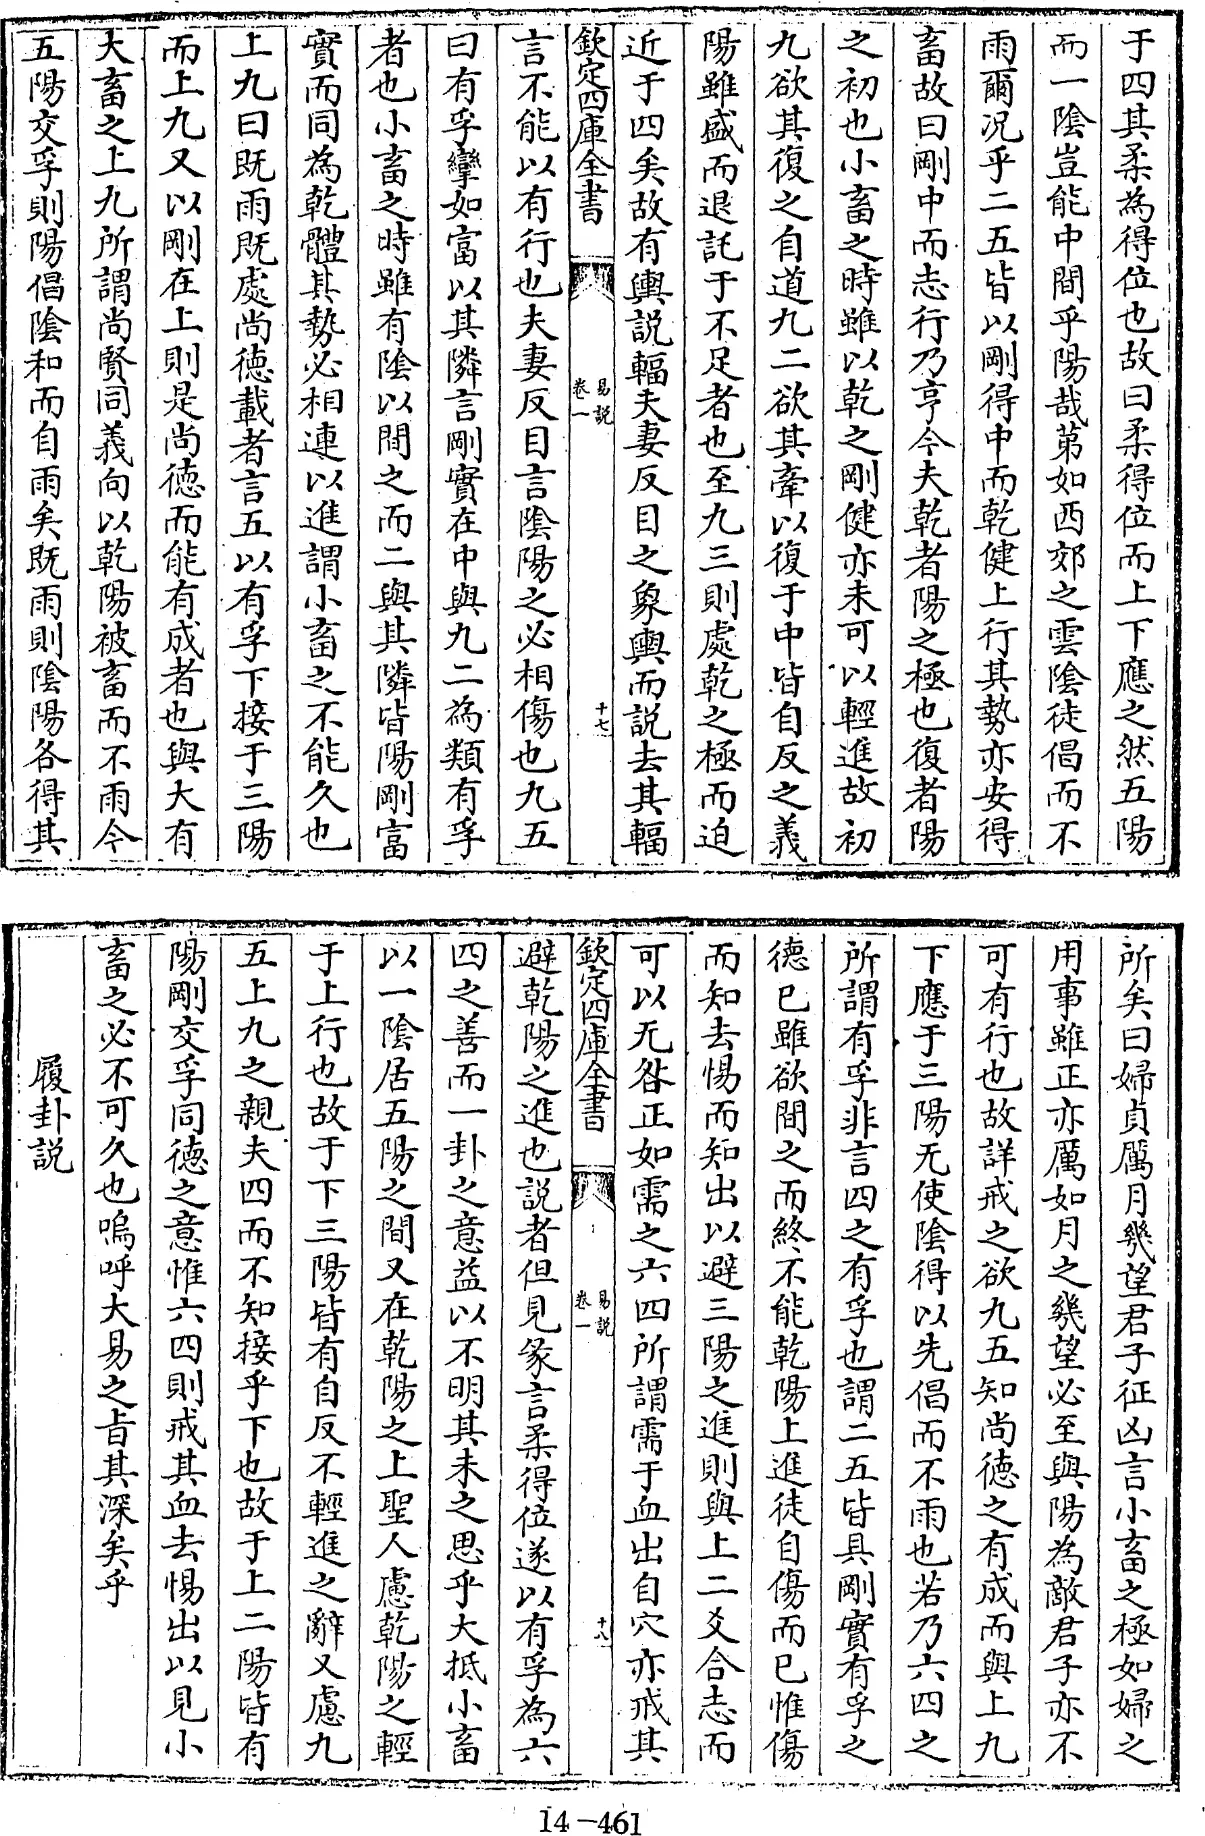 于四其柔為得位也故曰柔得位而上下應之然五陽
而一陰豈能中間乎陽哉第如西郊之雲陰徒倡而不
雨爾況乎二五皆以剛得中而乾健上行其勢亦安得
畜故曰剛中而志行乃亨今夫乾者陽之極也復者陽
之初也小畜之時雖以乾之剛健亦未可以輕進故初
九欲其復之自道九二欲其牽以復于中皆自反之義
陽雖盛而退託于不足者也至九三則處乾之極而迫
近于四矣故有輿說輻夫妻反目之象輿而說去其輻
欽定四庫全書
易說
卷一
十七
言不能以有行也夫妻反目言陰陽之必相傷也九五
曰有孚攣如富以其隣言剛實在中與九二為類有孚
者也小畜之時雖有陰以間之而二與其隣皆陽剛富
實而同為乾體其勢必相連以進謂小畜之不能久也
上九曰既雨既處尚德載者言五以有孚下接于三陽
而上九又以剛在上則是尚德而能有成者也與大有
大畜之上九所謂尚賢同義向以乾陽被畜而不雨今
五陽交孚則陽倡陰和而自雨矣既雨則陰陽各得其
所矣曰婦貞厲月幾望君子征凶言小畜之極如婦之
用事雖正亦厲如月之幾望必至與陽為敵君子亦不
可有行也故詳戒之欲九五知尚德之有成而與上九
下應于三陽无使陰得以先倡而不雨也若乃六四之
所謂有孚非言四之有孚也謂二五皆具剛實有孚之
德已雖欲間之而終不能乾陽上進徒自傷而已惟傷
而知去惕而知出以避三陽之進則與上二爻合志而
可以无咎正如需之六四所謂需于血出自穴亦戒其
欽定四庫全書
易說
卷一
十八
避乾陽之進也說者但見彖言柔得位遂以有孚為六
四之善而一卦之意益以不明其未之思乎大抵小畜
以一陰居五陽之間又在乾陽之上聖人慮乾陽之輕
于上行也故于下三陽皆有自反不輕進之辭又慮九
五上九之親夫四而不知接乎下也故于上二陽皆有
陽剛交孚同德之意惟六四則戒其血去惕出以見小
畜之必不可久也嗚呼大易之旨其深矣乎
履卦說
14-461